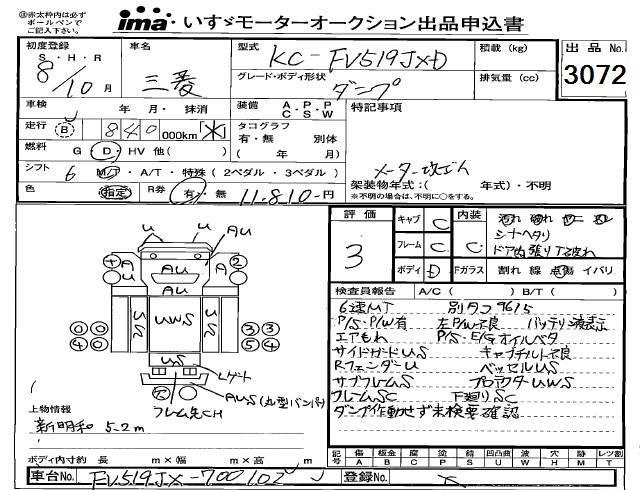 ㊟赤太枠内は必ず
ボールペンで
ご記入下さい。
ima いすゞモーターオークション出品申込書
初度登録
S・H・R
8/10月
車名
三菱
型式
KC-FV519JXD
グレード・ボディ形状
ダンプ
積載 (kg)
排気量 (cc)
出品No.
3072
車検
年 月・抹消
装備
A・P・P
C・S・W
特記事項
メーター改ざん
走行
B 840 000km (※)
タコグラフ
有・無 別体
( 年 月)
燃料
G・D・HV 他( )
シフト
6 M/T・A/T・特殊 (2ペダル・3ペダル)
架装物年式:( 年式)・不明
※不明の場合は、不明に○をする。
色
指定
R券
有・無
11.810-円
評価
3
キャブ C
フレーム C
ボディ D
内装
C
シートヘタリ
ドア内張り下破れ
Fガラス
割れ 線 点傷 イバリ
検査員報告
A/C ( ) B/T ( )
6速MT 別タコ9615
P/S・P/W有 左P/W不良 バッテリ液表示
エアもれ P/S・E/Gオイルベタ
サイドガードUS キャブチルト不良
RフェンダーU ベッセルUS
サブフレームS プロテクターUWS
フレームSC 下廻りSC
ダンプ作動せず未検要確認
U
U
AU
A
AU
U
A
+
2
AU
US
UWS
US
US
0 0
4 0
3 3
5 4
Lゲート
AUS (丸型バンパ)
フレーム先CH
上物情報
新明和 5.2m
ボディ内寸約 長 m×幅 m×高 m
記号
傷 板金 腐 塗 錆 凹凸曲 波 穴 跡 レツ割
A B C P S U W H M T
車台No.
FV519JX-700102
登録No.